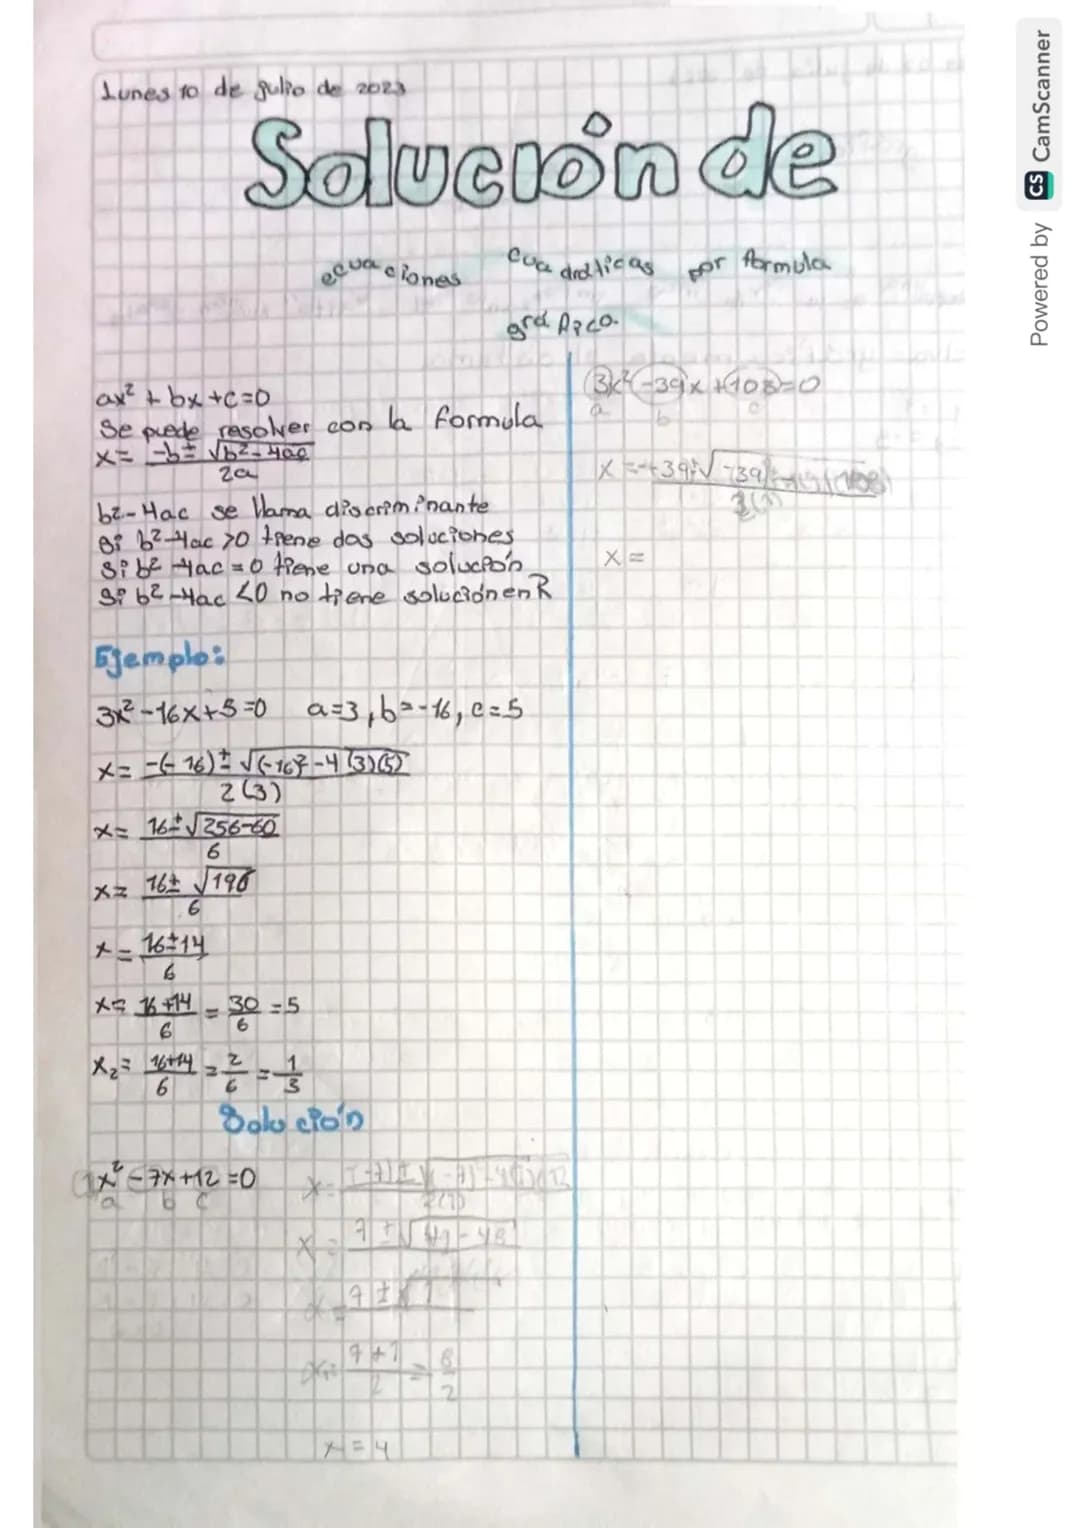 Lunes 10 de julio de 2023
Solución de
ecuaciones cuadráticas por formula
ax² + bx + c = 0
Se puede resolver con la formula
x = -b ± √b² - 4ac
2a
b² - 4ac se llama discriminante
Si b² - 4ac > 0 tiene dos soluciones
Si b² - 4ac = 0 tiene una solución
Si b² - 4ac < 0 no tiene solución en R
Ejemplo:
3x² - 16x + 5 = 0 a = 3, b = -16, c = 5
x = -(-16) ± √(-16)² - 4(3)(5)
2(3)
x = 16 ± √256-60
6
x = 16 ± √196
6
x = 16 ± 14
6
x = 16 + 14 = 30 = 5
6 6
x₂ = 16+14 = 2 = 1
6 6 3
Solución
1x² - 7x + 12 = 0
a b c
2(1)
x = 7 ± √49-48
7 + 1 = 8
2 2
x = 4
3x² - 39x + 108 = 0
a b c
x =
Powered by CS CamScanner